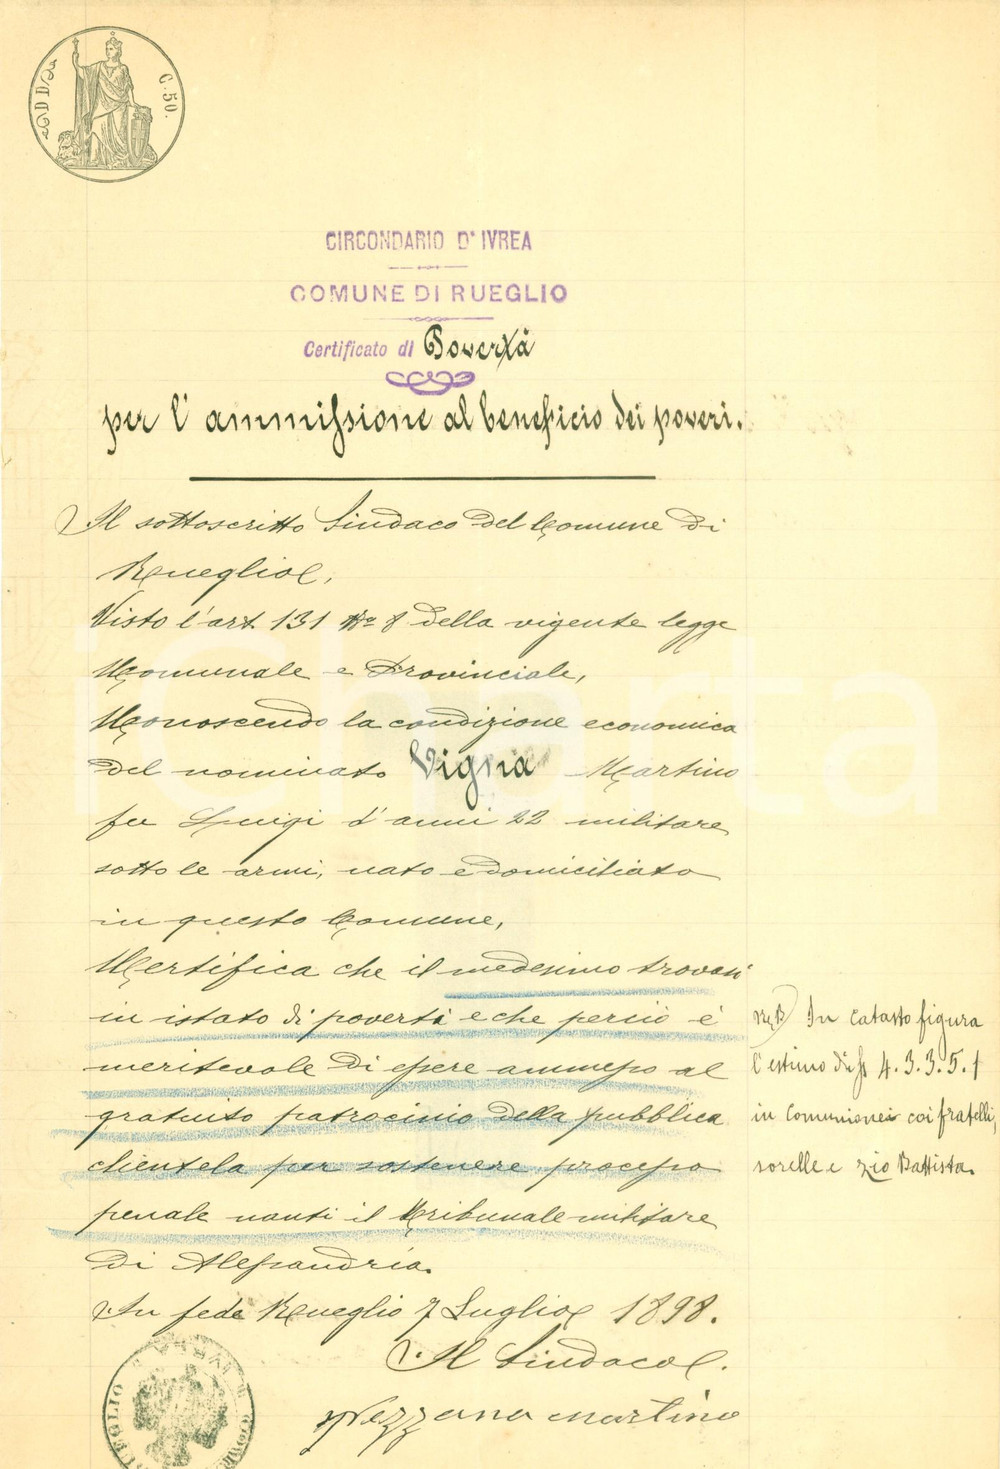 C. 50.
CIRCONDARIO D'IVREA
COMUNE DI RUEGLIO
Certificato di Povertà
per l'ammissione al beneficio dei poveri.
Il sottoscritto Sindaco del Comune di
Rueglio,
Visto l'art. 131 No 8 della vigente legge
Comunale e Provinciale,
Conoscendo la condizione economica
del nominato Vigna Martino
fu Luigi d'anni 22 militare
sotto le armi, nato e domiciliato
in questo Comune,
Certifica che il medesimo trovasi
in istato di povertà e che perciò è
meritevole di essere ammesso al
gratuito patrocinio della pubblica
clientela per sostenere processo
penale nanti il Tribunale militare
di Alessandria.
In fede Rueglio 7 Luglio 1898.
Il Sindaco.
Vezzana Martino
NB In catasto figura
l'estimo di 4.3.3.5.1
in comunione coi fratelli,
sorelle e zio Battista.
iCharta